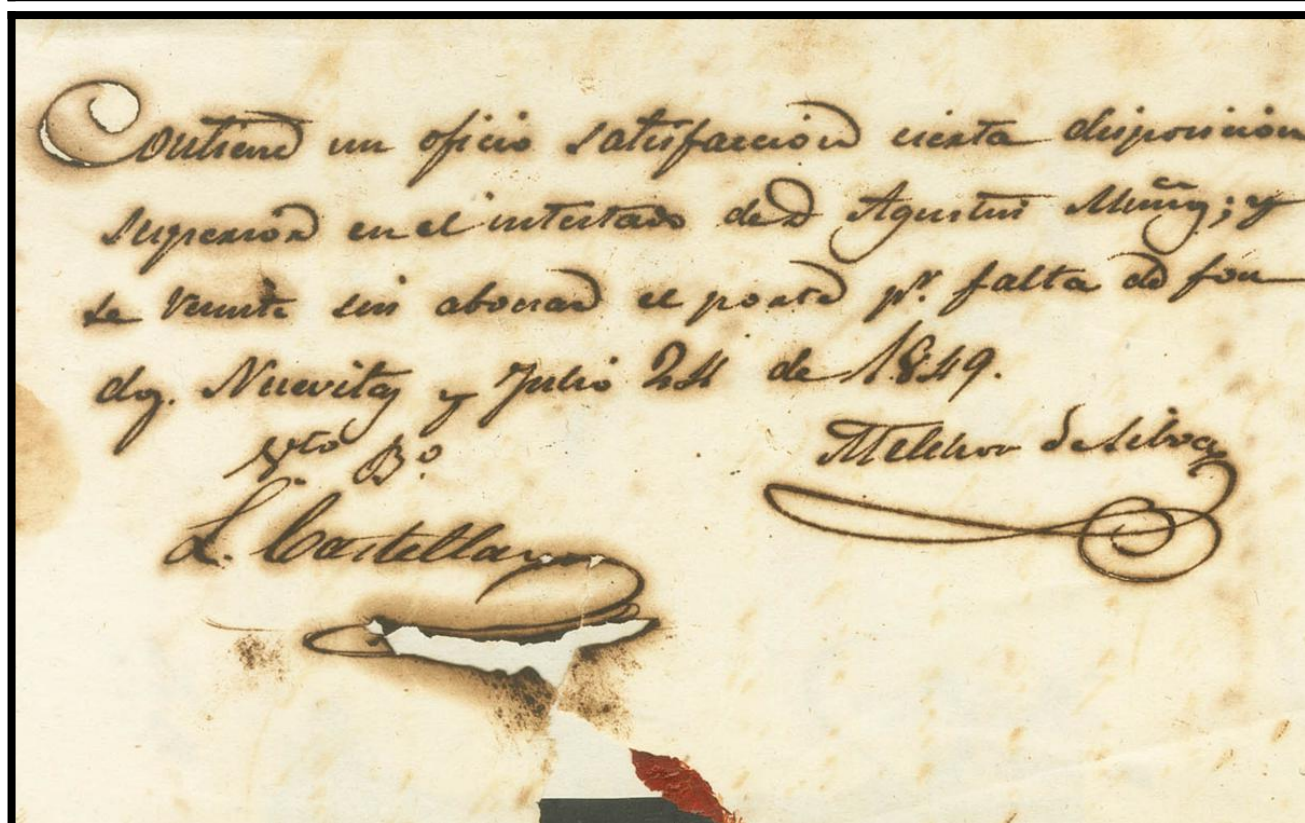 Contiene un oficio satisfaccion cierta disposicion
superior en el intestado de D Agustin Muñoz; y
se remite sin abonar el porte pr. falta de fon
dos. Nuevitas y Julio 24 de 1849.
Vto Bo
Melchor de Silva
L. Castellanos